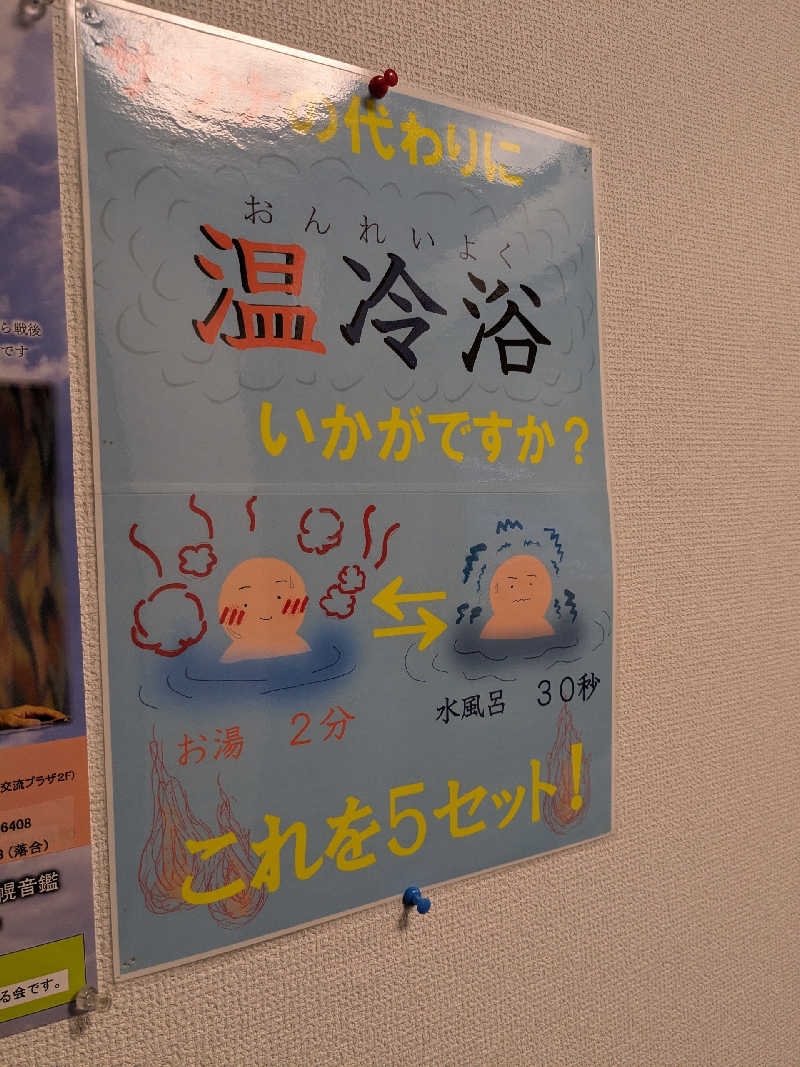 サウナの代わりに
おんれいよく
温冷浴
いかがですか？
お湯 2分
水風呂 30秒
これを5セット！
ら戦後
です
交流プラザ2F)
6408
(落合)
幌音鑑
る会です。